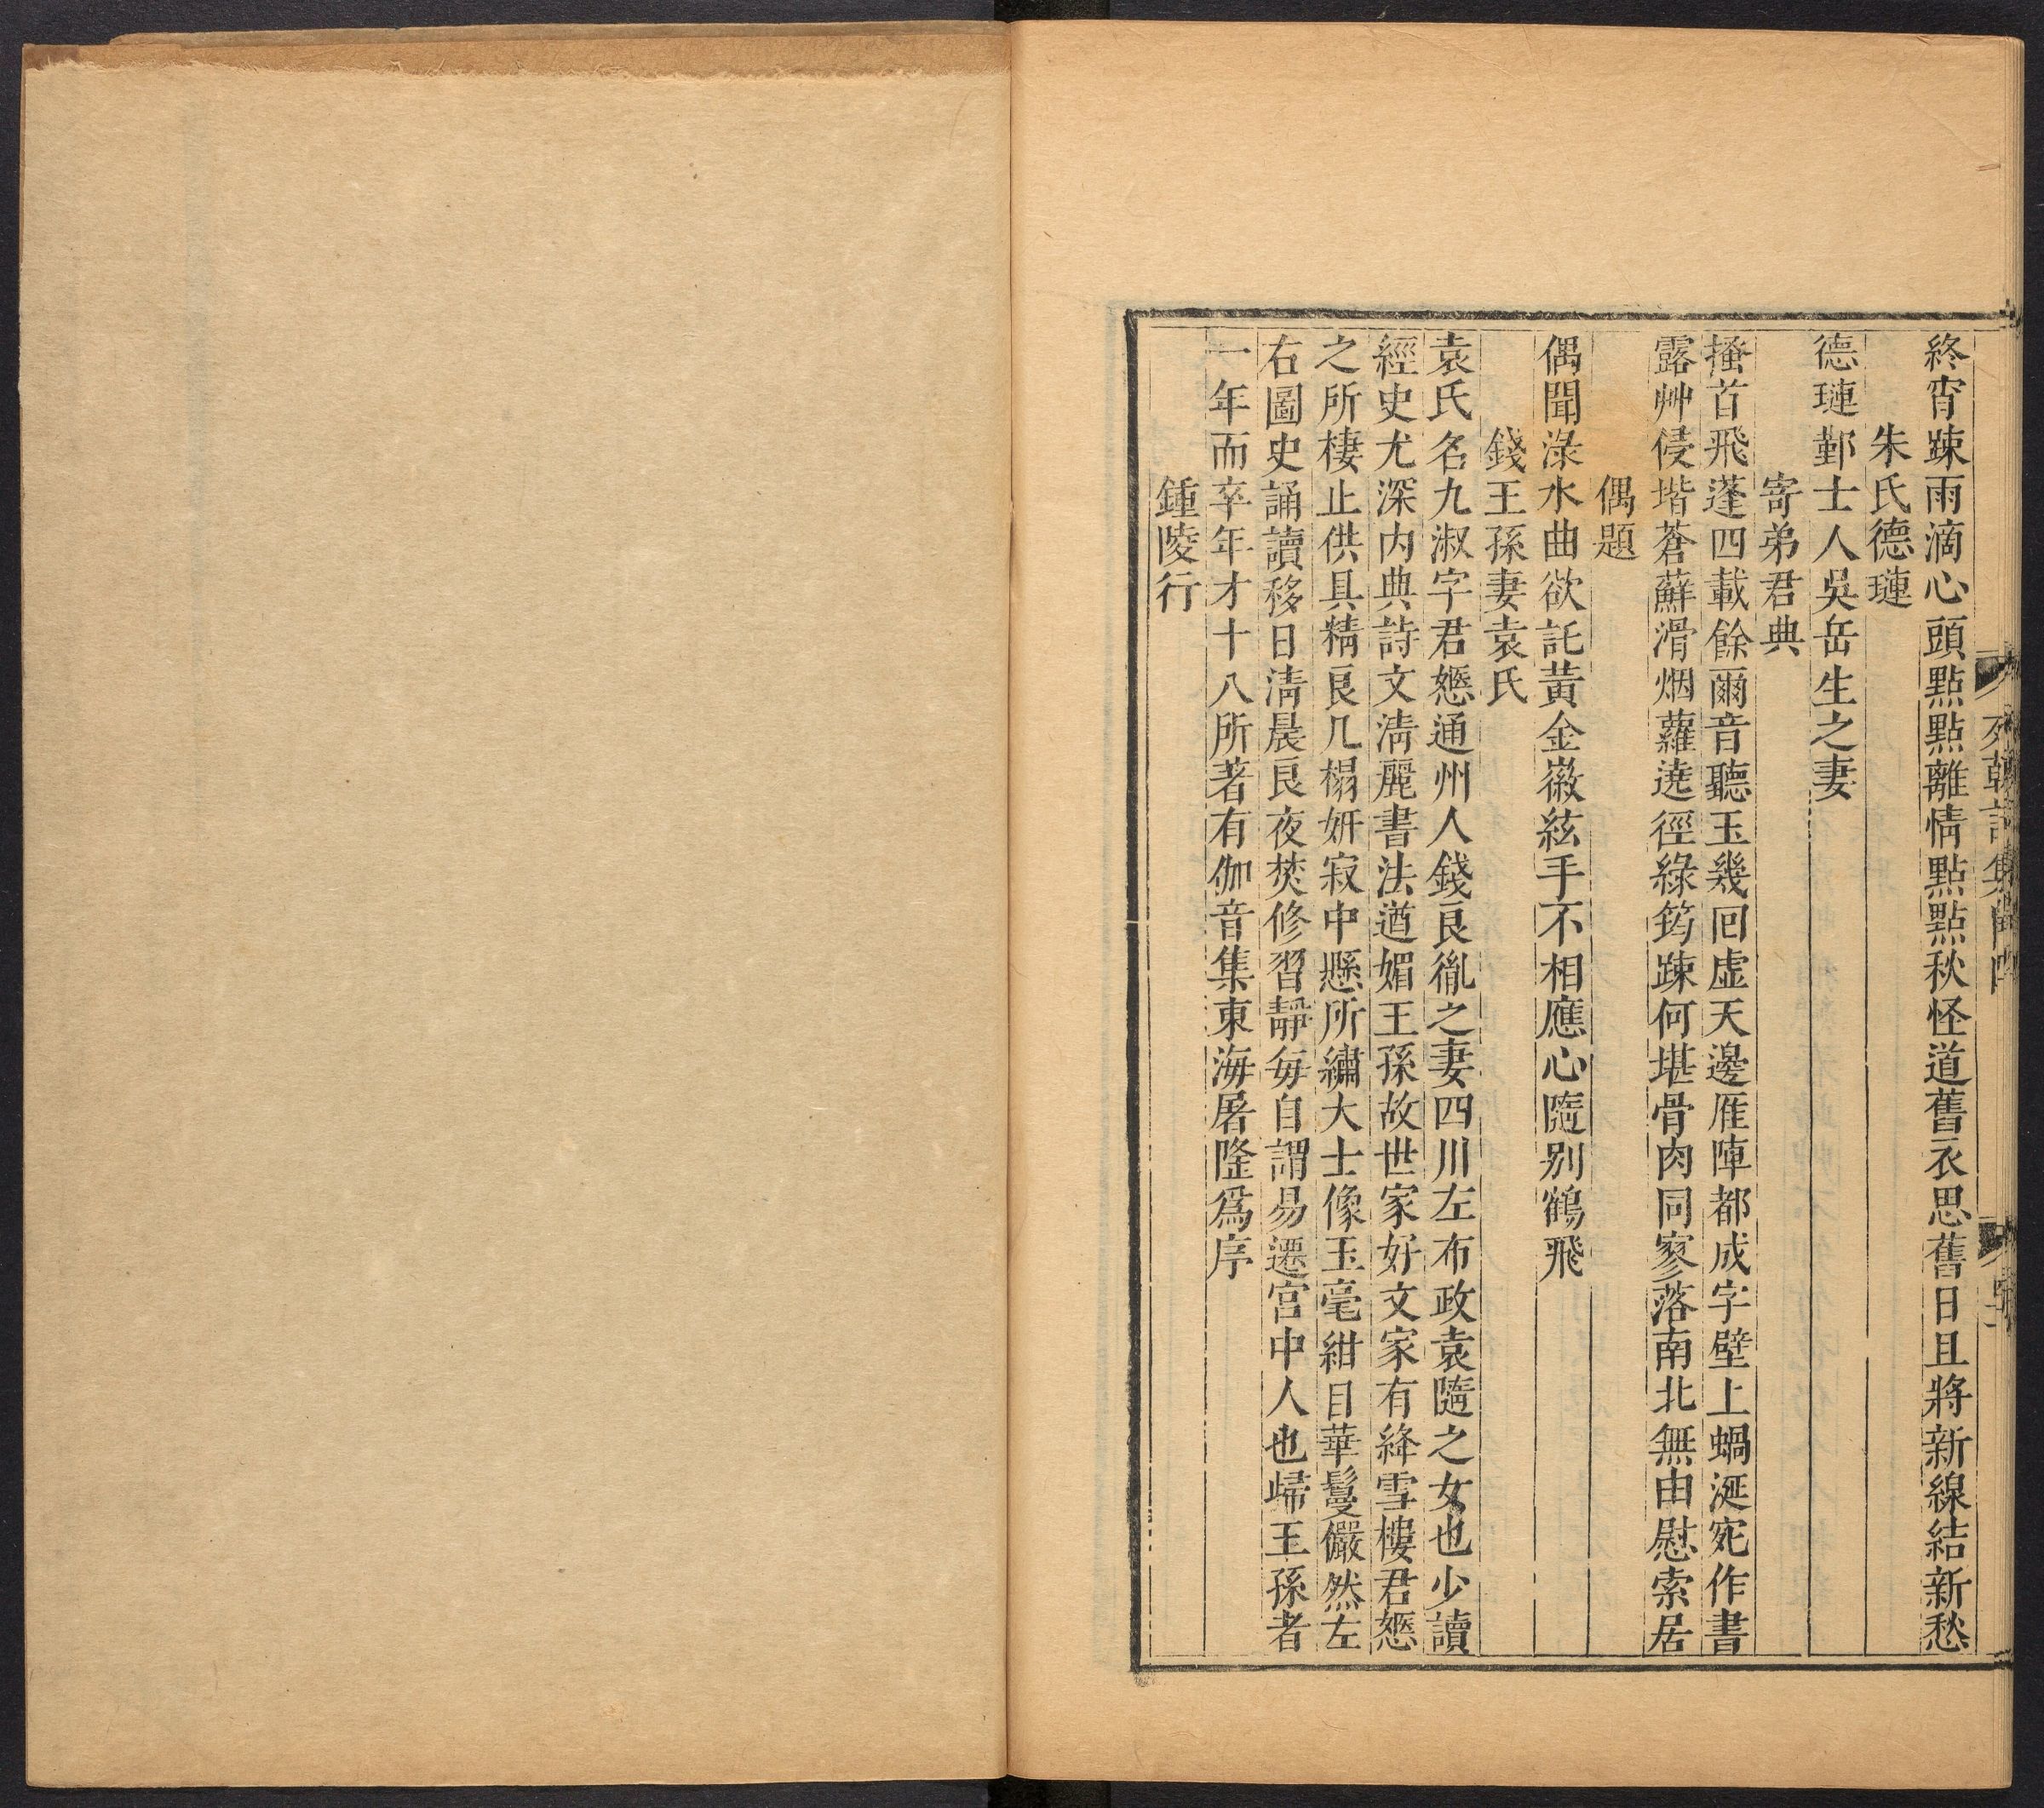 終宵踈雨滴心頭點點離情點點秋怪道舊衣思舊日且將新線結新愁
朱氏德璉
德璉鄞士人吳岳生之妻
寄弟君典
搔首飛蓬四載餘爾音聽玉幾囘虛天邊雁陣都成字壁上蝸涎宛作書
露艸侵堦蒼蘚滑烟蘿遶徑綠筠踈何堪骨肉同寥落南北無由慰索居
偶題
偶聞淥水曲欲託黃金徽絃手不相應心隨别鶴飛
錢王孫妻袁氏
袁氏名九淑字君嬺通州人錢良胤之妻四川左布政袁隨之女也少讀
經史尤深内典詩文淸麗書法遒媚王孫故世家好文家有絳雪樓君嬺
之所棲止供具精良几榻妍寂中懸所繡大士像玉毫紺目華鬘儼然左
右圖史誦讀移日淸晨良夜焚修習靜每自謂易遷宮中人也歸王孫者
一年而卒年才十八所著有伽音集東海屠隆爲序
鍾陵行